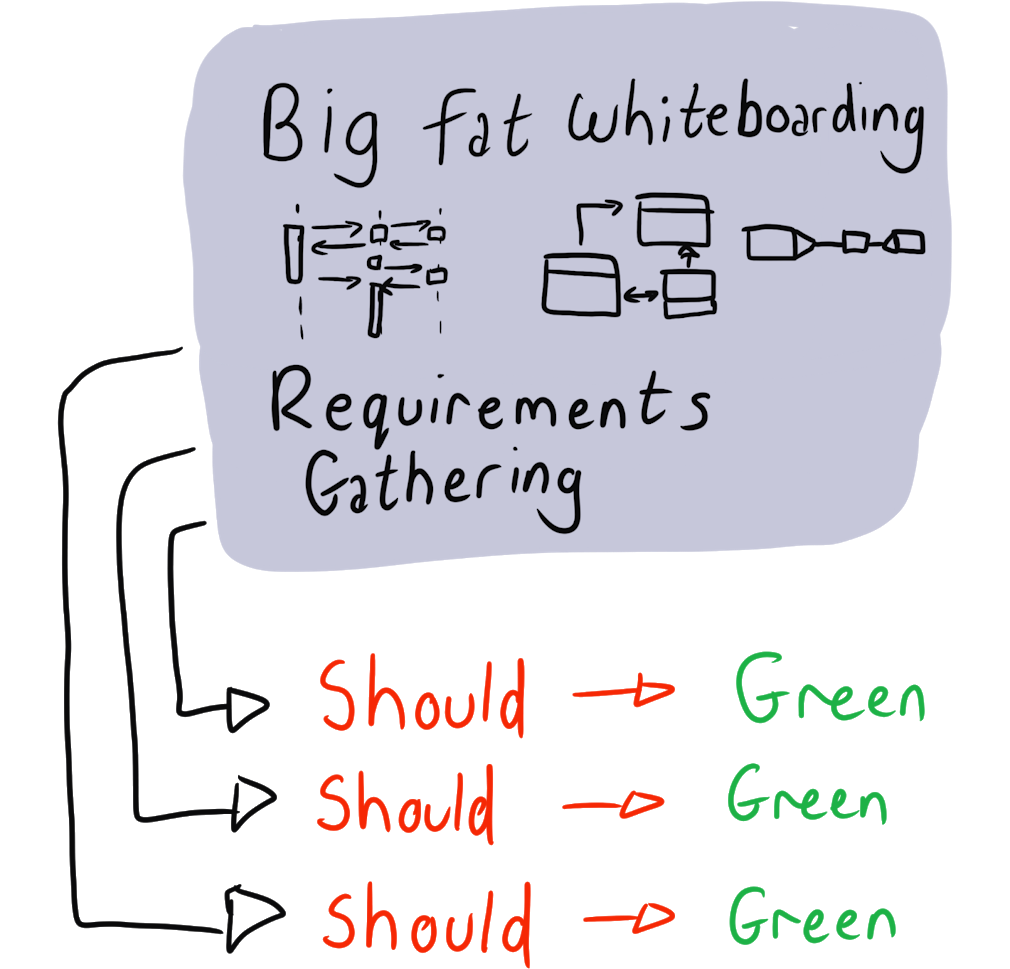 Big fat whiteboarding
Requirements
Gathering
Should Green
Should Green
Should Green